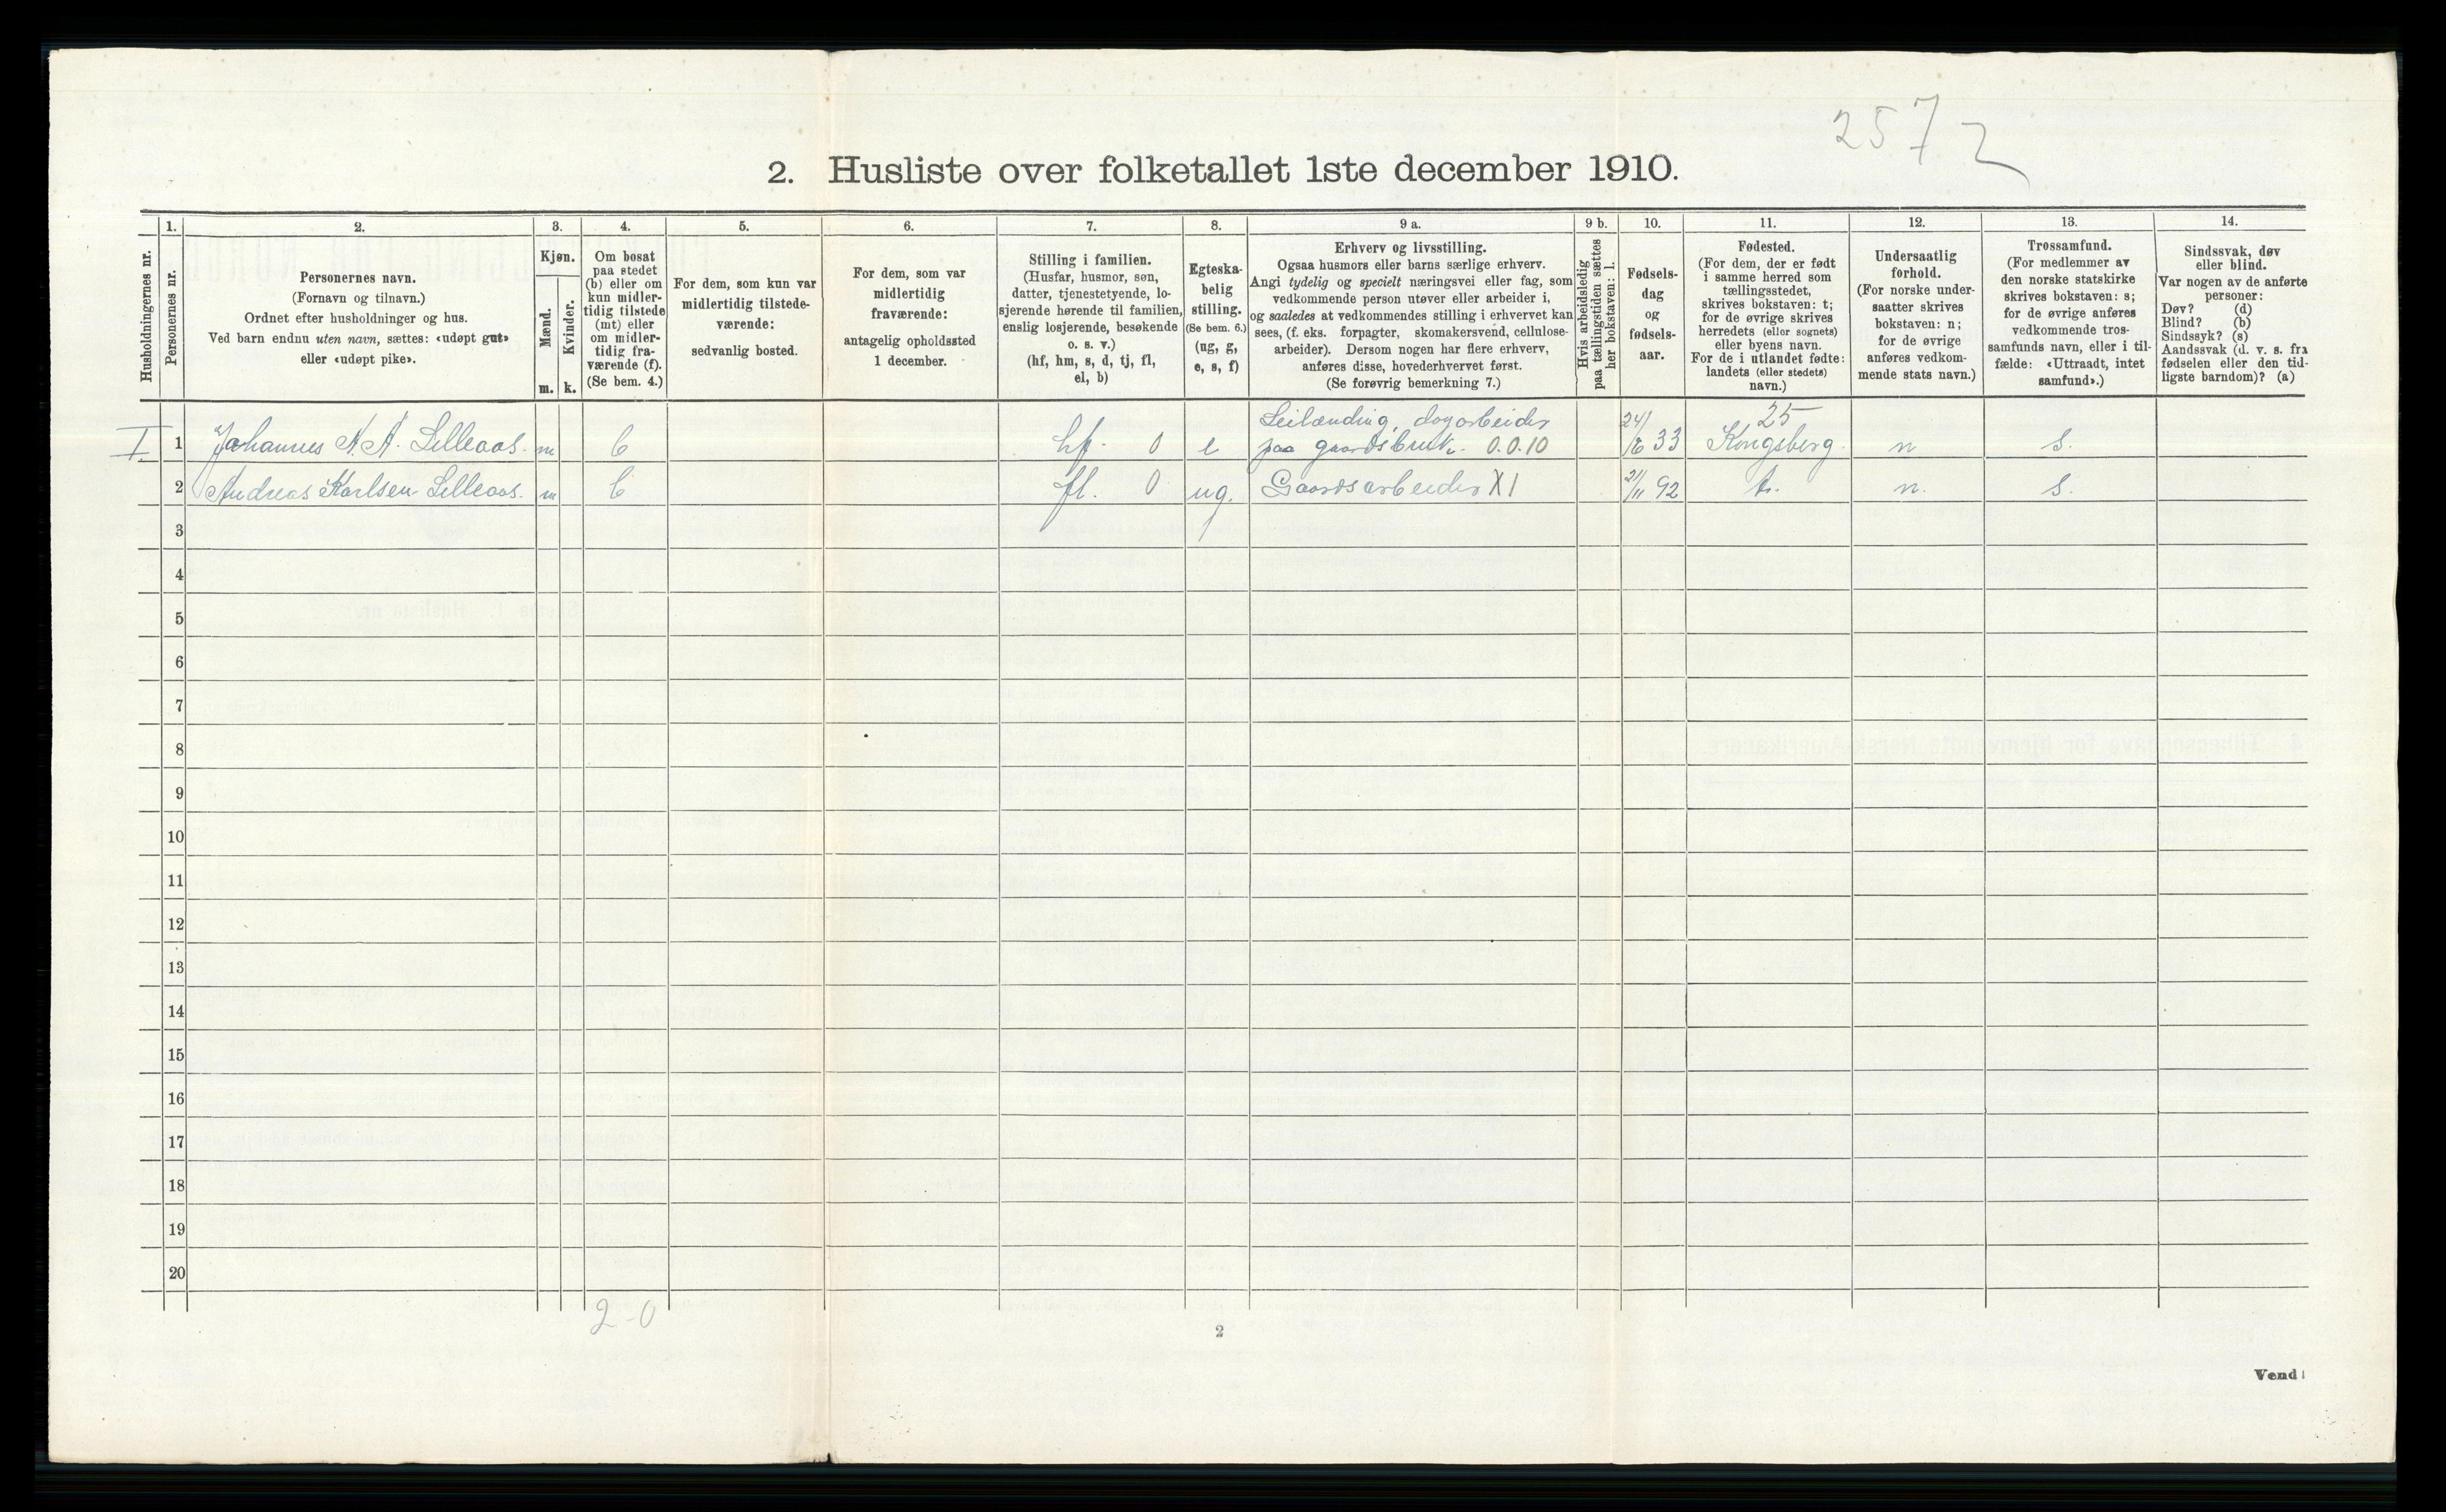 257 2
2. Husliste over folketallet 1ste december 1910.
Husholdningernes nr.
1.
Personernes nr.
2.
Personernes navn.
(Fornavn og tilnavn.)
Ordnet efter husholdninger og hus.
Ved barn endnu uten navn, sættes: «udøpt gut»
eller «udøpt pike».
3.
Kjøn.
Mænd.
m.
Kvinder.
k.
4.
Om bosat
paa stedet
(b) eller om
kun midler-
tidig tilstede
(mt) eller
om midler-
tidig fra-
værende (f).
(Se bem. 4.)
5.
For dem, som kun var
midlertidig tilstede-
værende:
sedvanlig bosted.
6.
For dem, som var
midlertidig
fraværende:
antagelig opholdssted
1 december.
7.
Stilling i familien.
(Husfar, husmor, søn,
datter, tjenestetyende, lo-
sjerende hørende til familien,
enslig losjerende, besøkende
o. s. v.)
(hf, hm, s, d, tj, fl,
el, b)
8.
Egteska-
belig
stilling.
(Se bem. 6.)
(ug, g,
e, s, f)
9 a.
Erhverv og livsstilling.
Ogsaa husmors eller barns særlige erhverv.
Angi tydelig og specielt næringsvei eller fag, som
vedkommende person utøver eller arbeider i,
og saaledes at vedkommendes stilling i erhvervet kan
sees, (f. eks. forpagter, skomakersvend, cellulose-
arbeider). Dersom nogen har flere erhverv,
anføres disse, hovederhvervet først.
(Se forøvrig bemerkning 7.)
9 b.
Hvis arbeidsledig
paa tællingstiden sættes
her bokstaven: l.
10.
Fødsels-
dag
og
fødsels-
aar.
11.
Fødested.
(For dem, der er født
i samme herred som
tællingsstedet,
skrives bokstaven: t;
for de øvrige skrives
herredets (eller sognets)
eller byens navn.
For de i utlandet fødte:
landets (eller stedets)
navn.)
12.
Undersaatlig
forhold.
(For norske under-
saatter skrives
bokstaven: n;
for de øvrige
anføres vedkom-
mende stats navn.)
13.
Trossamfund.
(For medlemmer av
den norske statskirke
skrives bokstaven: s;
for de øvrige anføres
vedkommende tros-
samfunds navn, eller i til-
fælde: «Uttraadt, intet
samfund».)
14.
Sindssvak, døv
eller blind.
Var nogen av de anførte
personer:
Døv? (d)
Blind? (b)
Sindssyk? (s)
Aandssvak (d. v. s. fra
fødselen eller den tid-
ligste barndom)? (a)
Leilænding, dagarbeider 25
I. 1 Johannes A. A. Lilleaas. m b hf. 0 e paa gaardsbruk. 0.0.10 24/6 33 Kongsberg. n s.
2 Andreas Karlsen Lilleaas. m b fl. 0 ug. Gaardsarbeider X1 21/11 92 t. n. s.
3
4
5
6
7
8
9
10
11
12
13
14
15
16
17
18
19
20
2-0
2
Vend!